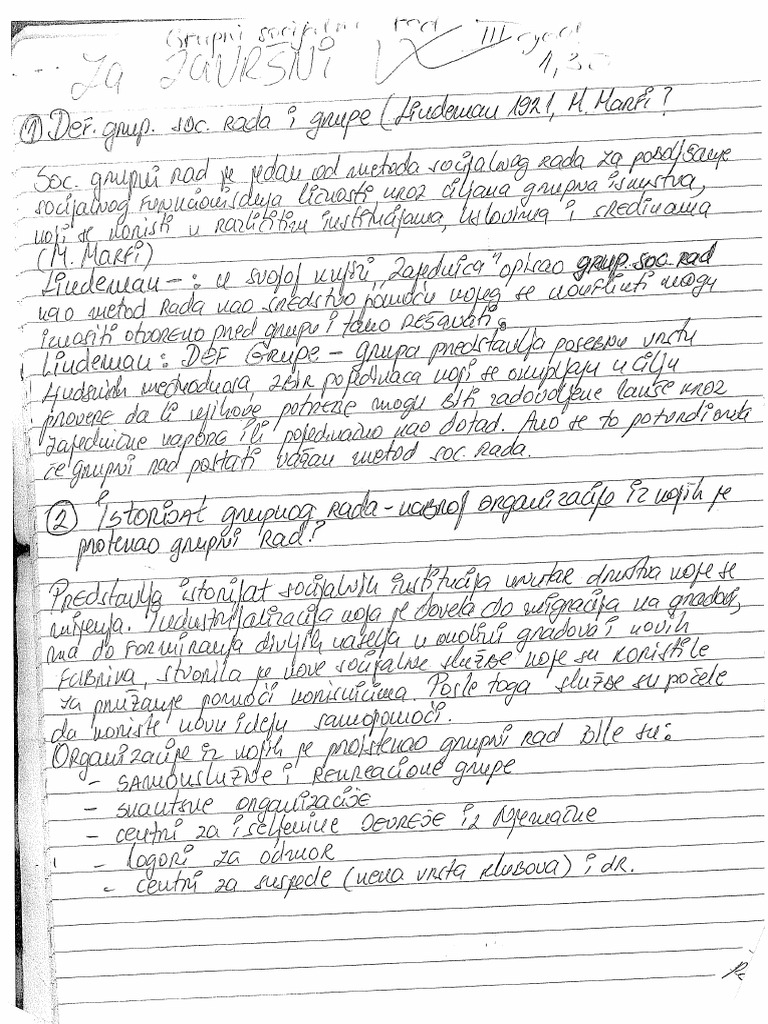 Grupni socijalni rad III
Za ZAVRŠNI
① DEF. grup. soc. rada i grupe (Lindeman 1921, M. Marfi?
Soc. grupni rad je jedan od metoda socijalnog rada za poboljšanje
socijalnog funkcionisanja ličnosti, kroz ciljana grupna iskustva,
koji se koristi u različitim institucijama, uslovima i sredinama
(M. Marfi)
Lindeman -: u svojoj knjizi „Zajednica" opisao grup. soc. rad
kao metod rada kao sredstvo pomoću kojeg se konflikti mogu
iznositi otvoreno pred grupu i tako REšavati.
Lindeman: DEF GRUPE - grupa predstavlja posebnu vrstu
ljudskih međuodnosa, zbir pojedinaca koji se okupljaju u cilju
provere da li njihove potrebe mogu biti zadovoljene lakše kroz
zajedničke napore ili pojedinačno kao dotad. Ako se to potvrdi onda
će grupni rad postati važan metod soc. rada.
② istorijat grupnog rada - nabroj organizacije iz kojih je
protekao grupni rad?
Predstavlja istorijat socijalnih institucija unutar društva koje se
mijenja. Industrijalizacija koja je dovela do migracija ka gradovima,
do formiranja divljih naselja u okolini gradova i novih
fabrika, stvorila je nove socijalne službe koje su koristile
za pružanje pomoći korisnicima. Posle toga službe su počele
da koriste novu ideju samopomoći.
Organizacije iz kojih je proistekao grupni rad bile su:
- samouslužne i rekreacione grupe
- skautske organizacije
- centri za iseljenike JEVREJE iz Njemačke
- logori za odmor
- centri za susjede (neka vrsta klubova) i dr.